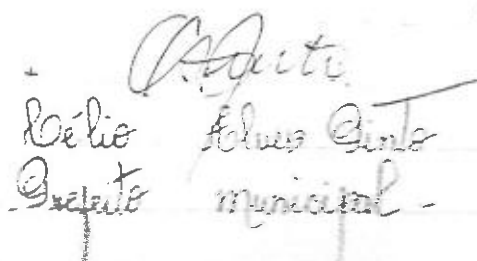 Célio Alves Pinto
Prefeito municipal -